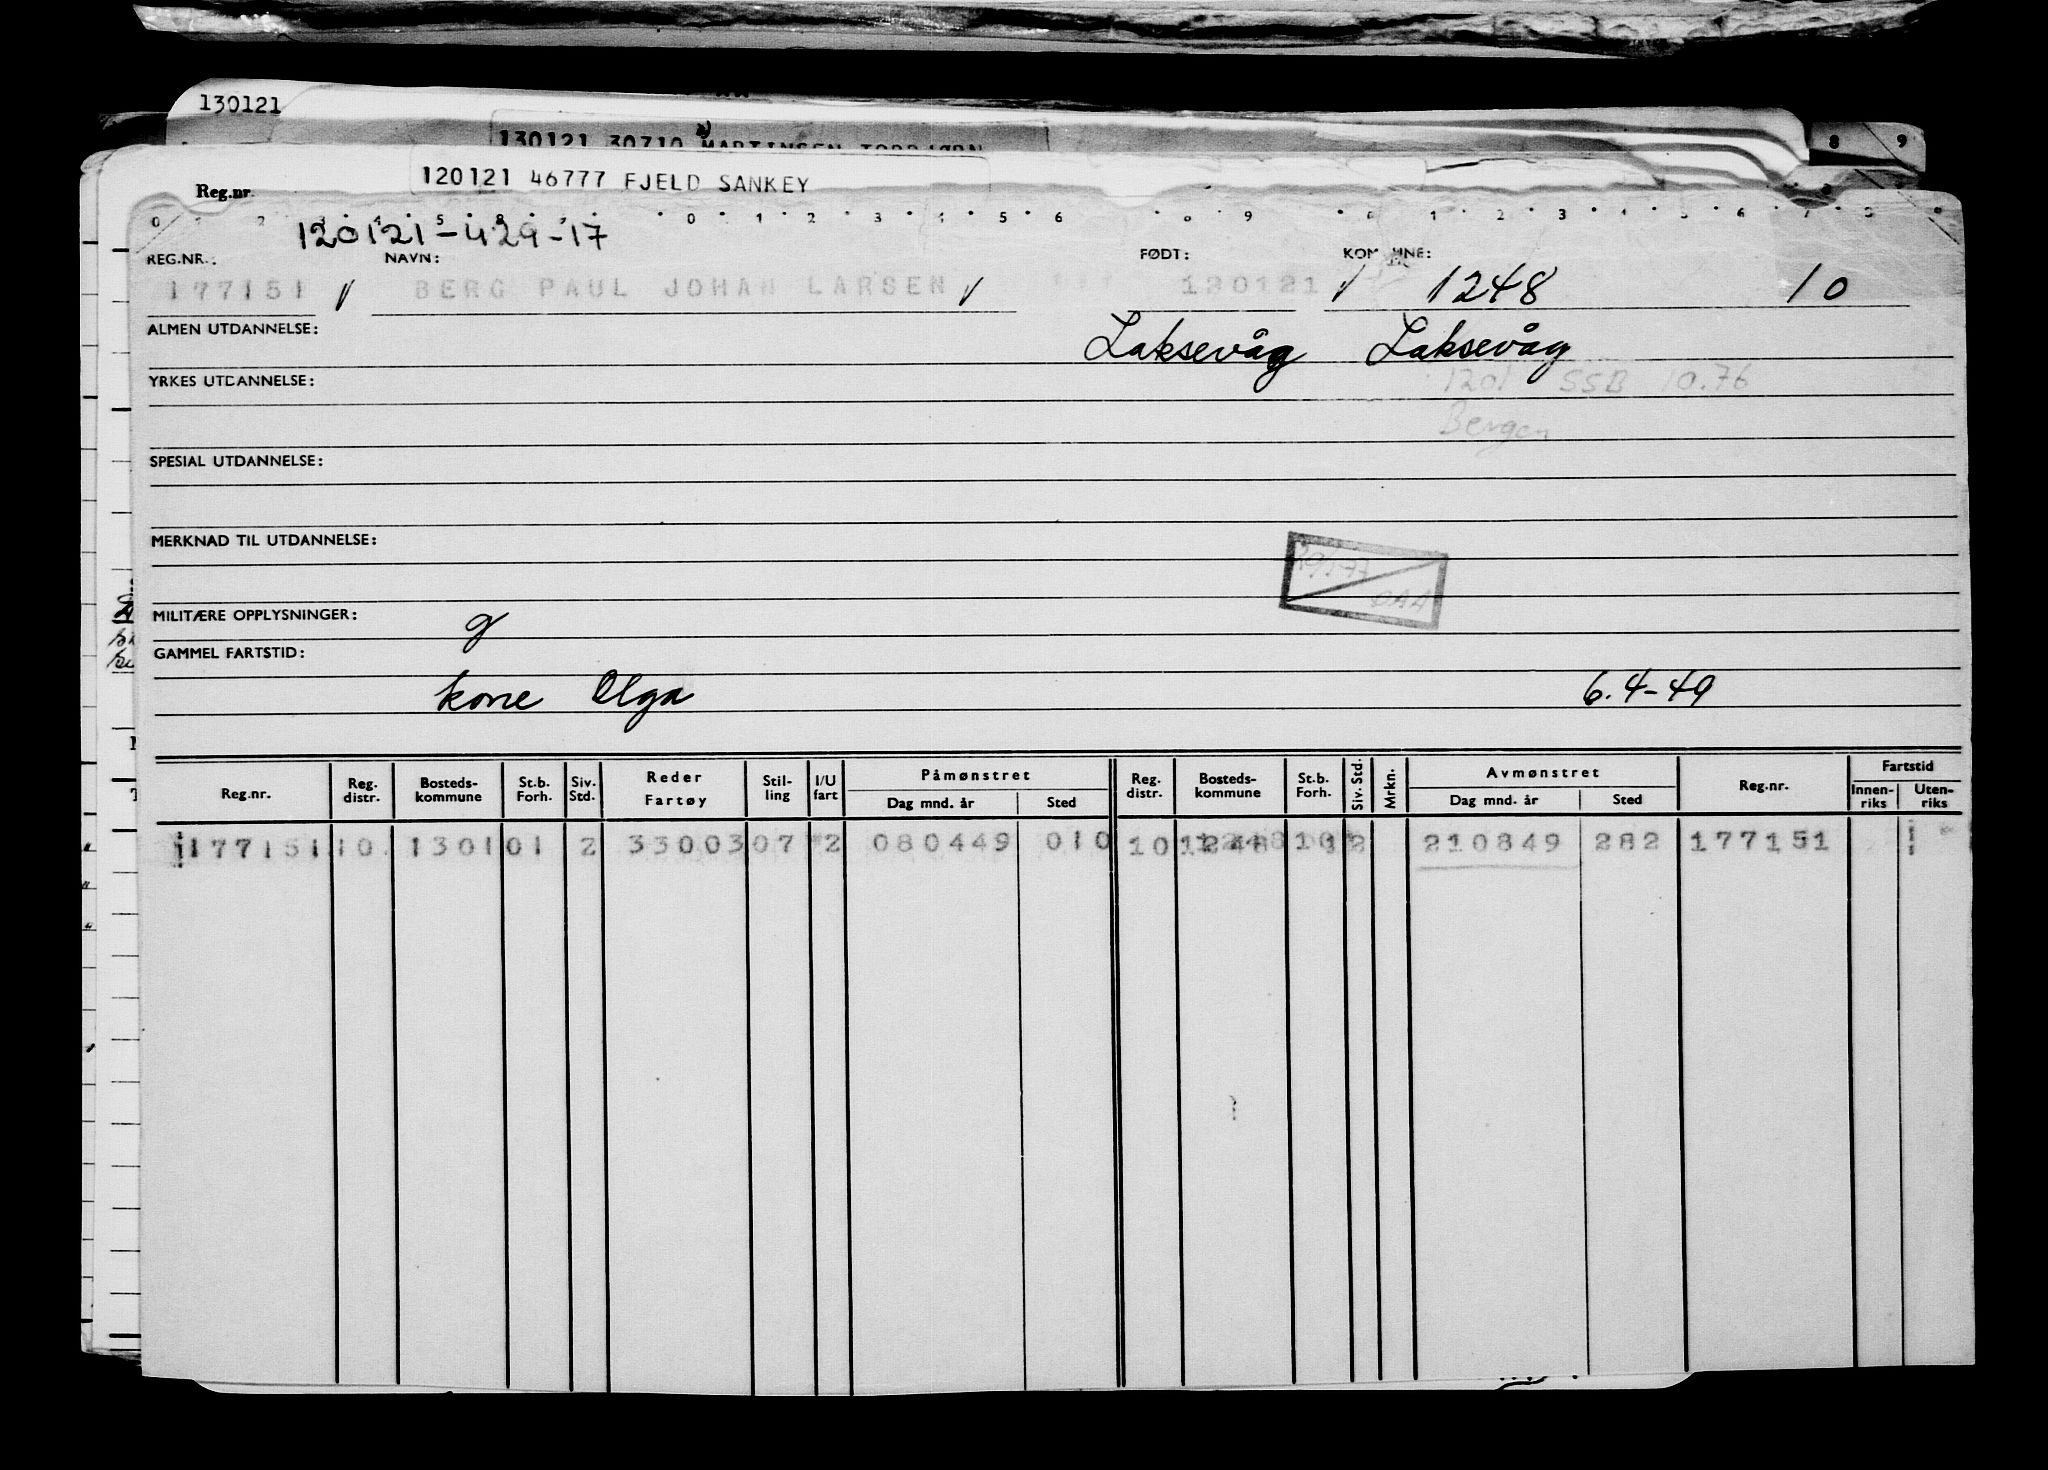 130121
130121 30710 MARTINSEN TORBJØRN
120121 46777 FJELD SANKEY
Reg.nr.
120121-429-17
REG.NR.: NAVN: FØDT: KOMMUNE:
177151 BERG PAUL JOHAN LARSEN 120121 1248 10
ALMEN UTDANNELSE: Laksevåg Laksevåg
YRKES UTDANNELSE: 1201 SSB 10.76
Bergen
SPESIAL UTDANNELSE:
MERKNAD TIL UTDANNELSE:
MILITÆRE OPPLYSNINGER: g
GAMMEL FARTSTID:
kone Olga 6.4-49
Reg.nr. Reg. distr. Bosteds-kommune St.b. Forh. Siv. Std. Reder Fartøy Stil-ling I/U fart Påmønstret Dag mnd. år Sted Reg. distr. Bosteds-kommune St.b. Forh. Siv. Std. Mrkn. Avmønstret Dag mnd. år Sted Reg.nr. Fartstid Innen-riks Uten-riks
177151 10 1301 01 2 33003 07 2 080449 010 10 1248 10 2 210849 282 177151